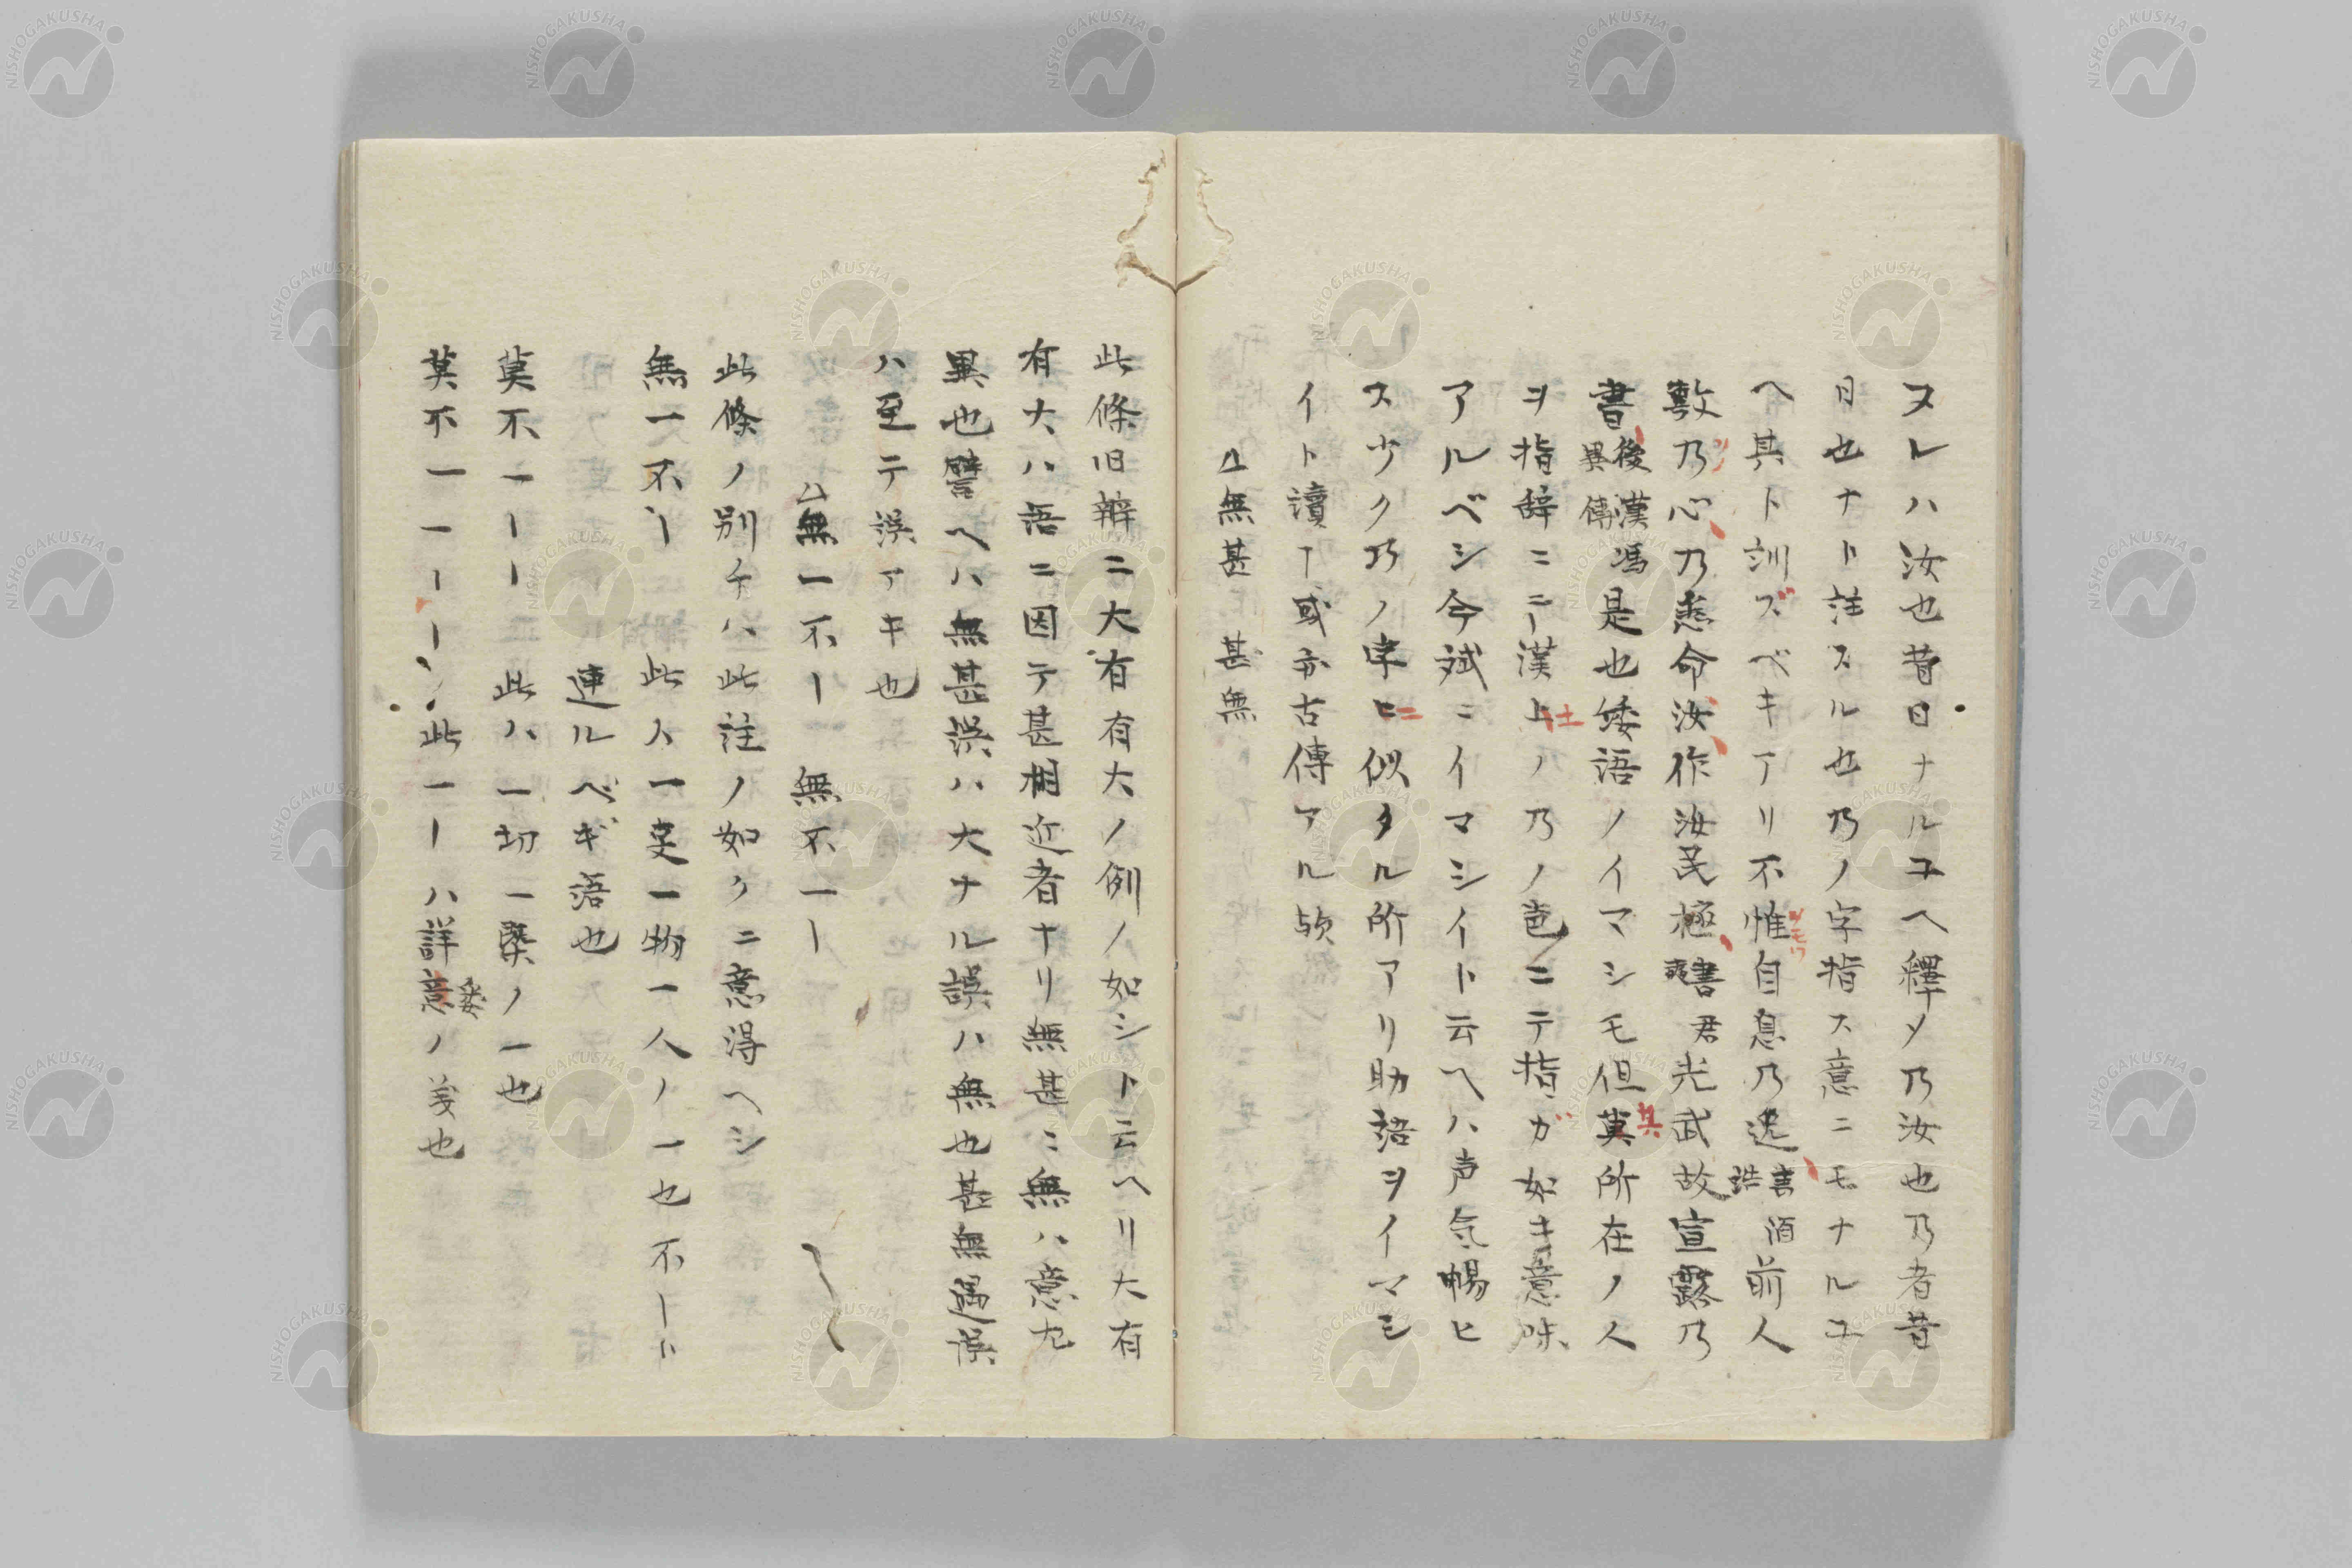 ヌレハ汝也昔日ナルユヘ釋メ乃汝也乃者昔
日也ナト注スル也乃ノ字指ス意ニモナルユ
ヘ其ト訓ズベキアリ不惟自息乃逸書酒誥前人
敷乃心乃悉命汝作汝民極書君奭光武故宣露乃
書後漢馮異傳是也倭語ノイマシモ但其所在ノ人
ヲ指辞ニ乄漢土ノ乃ノ邑ニテ指ガ如キ意味
アルベシ今斌ニイマシイト云ヘハ声氣暢ヒ
ス少ク乃ノ字ニ似タル所アリ助語ヲイマシ
イト讀ー或亦古傳アル欤
△無甚 甚無
此條旧辨ニ大有有大ノ例ノ如シト云ヘリ大有
有大ハ語ニ因テ甚相近者ナリ無甚ニ無ハ意尤
異也譬ヘハ無甚誤ハ大ナル誤ハ無也甚無過誤
ハ至テ誤アキ也
△無一不ー 無不一ー
此條ノ別チハ此注ノ如クニ意得ヘシ
無一不ー 此人一吏一物一人ノ一也不ーハ
連ルベギ語也
莫不一ーー 此ハ一切一槩ノ一也
莫不一一ーー 此一ーハ詳悉意ノ義也
NISHOGAKUSHA